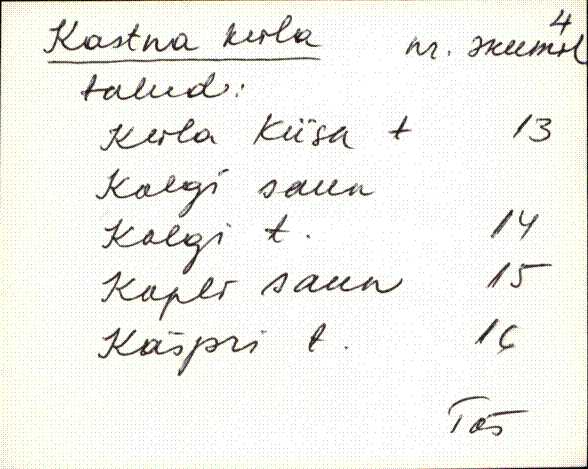 4
Kastna küla nr. skeemil
talud:
Küla Kiisa t 13
Kolgi saun
Kolgi t. 14
Kapli saun 15
Käspri t. 16
Tõs